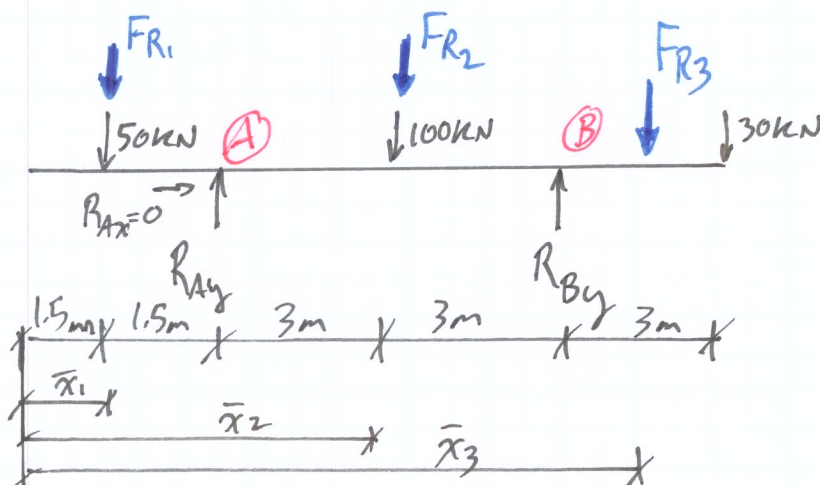 FR1 FR2 FR3
50KN A 100KN B 30KN
RAx=0
RAy RBy
1.5m 1.5m 3m 3m 3m
x̄1
x̄2
x̄3